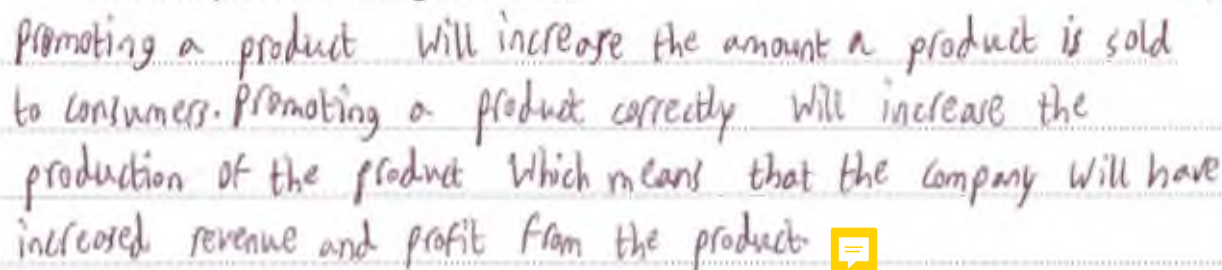 Promoting a product will increase the amount a product is sold
to consumers. Promoting a product correctly will increase the
production of the product which means that the company will have
increased revenue and profit from the product.